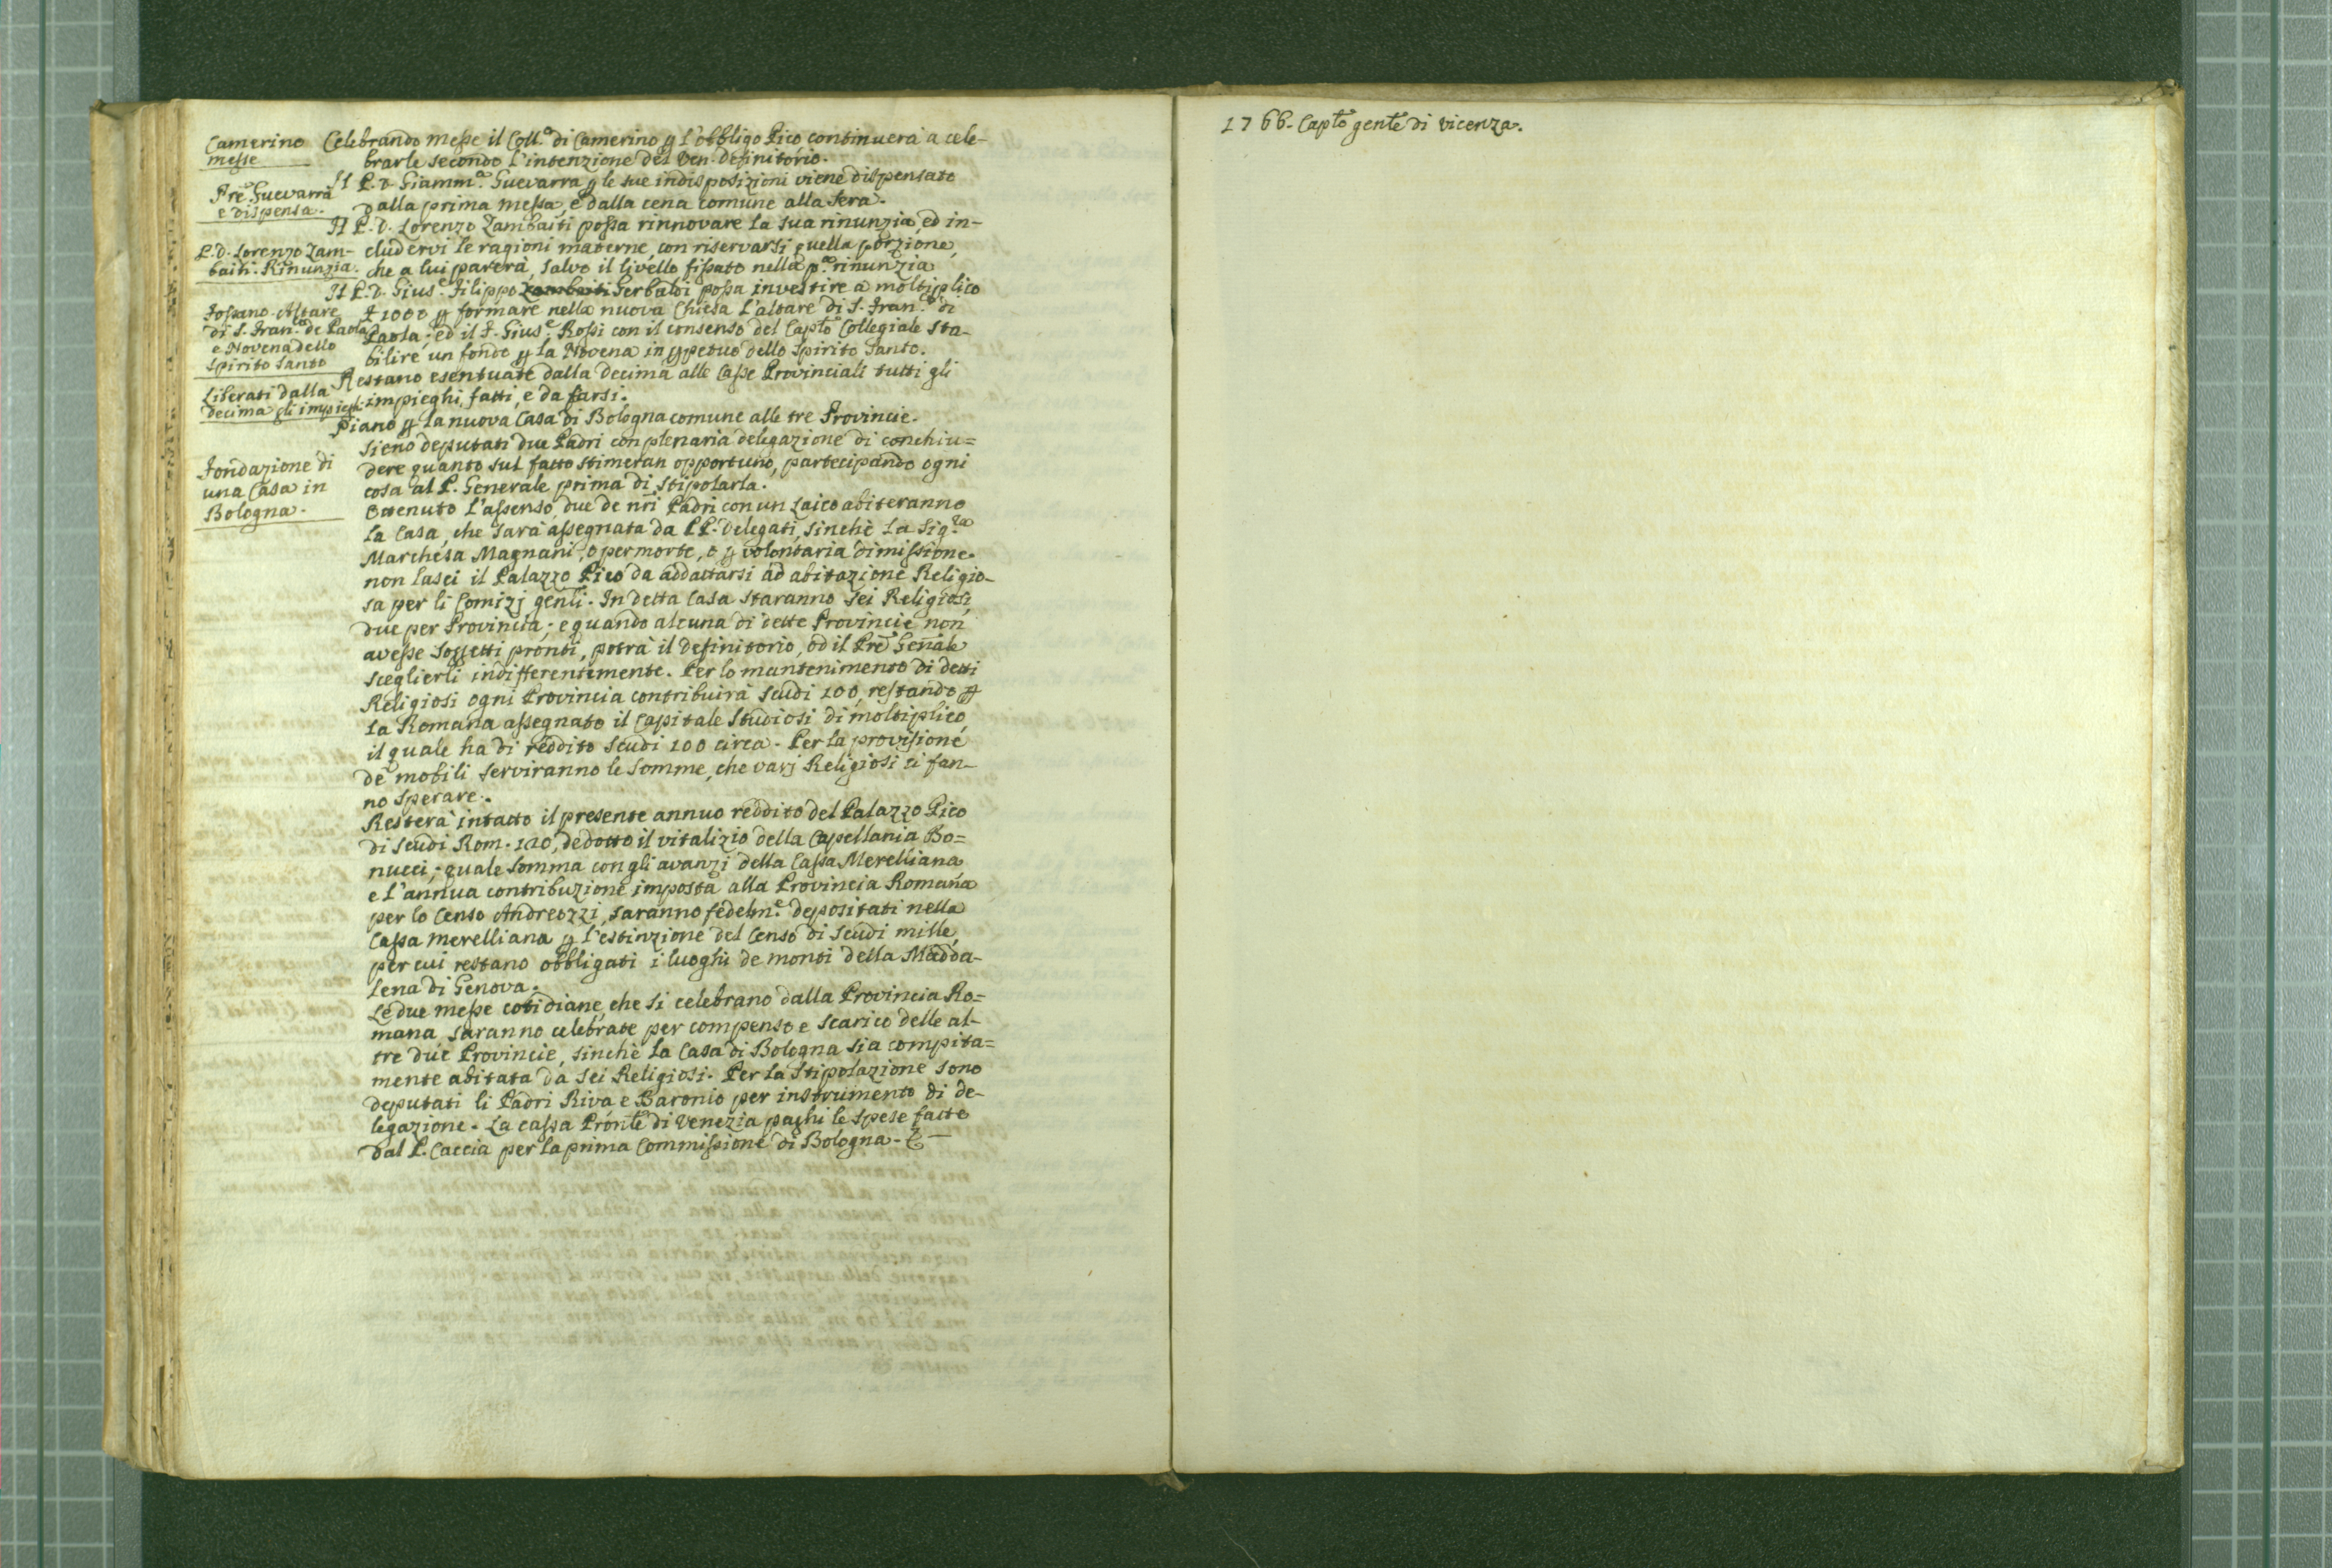 Camerino
messe
Celebrando messe il Coll.º di Camerino p l'obbligo Pico continuerà a cele-
brarle secondo l'intenzione del Ven. Definitorio.
Pre Guevarra
e dispensa.
Il P. D. Giamm.ª Guevarra p le sue indisposizioni viene dispensato
dalla prima messa, e dalla cena comune alla sera.
P. D. Lorenzo Zam-
baiti. Rinunzia.
Il P. D. Lorenzo Zambaiti possa rinnovare la sua rinunzia, ed in-
cludervi le ragioni materne, con riservarsi quella porzione,
che a lui parerà, salvo il livello fissato nella p.ª rinunzia
Fossano. Altare
di S. Fran.co de Paola
e Novena dello
Spirito Santo
Il P. D. Gius.e Filippo Zambaiti Gerbaldi possa investire a moltiplico
£ 1000 p formare nella nuova Chiesa l'altare di S. Fran.co di
Paola; ed il F. Gius.e Rossi con il consenso del Capto Collegiale sta-
bilire un fondo p la Novena in ppetuo dello Spirito Santo.
Liberati dalla
decima gli impieghi
Restano esentuate dalla decima alle Casse Provinciali tutti gli
impieghi, fatti, e da farsi.
Fondazione di
una Casa in
Bologna.
Piano p la nuova Casa di Bologna comune alle tre Provincie.
Sieno deputati due Padri con plenaria delegazione di conchiu=
dere quanto sul fatto stimeran opportuno, partecipando ogni
cosa al P. Generale prima di stipolarla.
Ottenuto l'assenso, due de nri Padri con un Laico abiteranno
la Casa, che sarà assegnata da PP. Delegati, sinchè la Sig.ra
Marchesa Magnani, o per morte, o p volontaria dimissione
non lasci il Palazzo Pico da addattarsi ad abitazione Religio-
sa per li Comizj genli. In detta Casa staranno sei Religiosi,
due per Provincia; e quando alcuna di dette Provincie non
avesse soggetti pronti, potrà il Definitorio, od il Pre Genale
sceglierli indifferentemente. Per lo mantenimento di detti
Religiosi ogni Provincia contribuirà scudi 100, restando p
la Romana assegnato il Capitale Studiosi di moltiplico,
il quale ha di reddito scudi 100 circa. Per la provisione
de mobili serviranno le somme, che varj Religiosi ci fan-
no sperare.
Resterà intatto il presente annuo reddito del Palazzo Pico
di scudi Rom. 120, dedotto il vitalizio della Capellania Bo=
nucci; quale somma con gli avanzi della Cassa Merelliana
e l'annua contribuzione imposta alla Provincia Romana
per lo Censo Andreozzi, saranno fedelm.e depositati nella
Cassa Merelliana p l'estinzione del Censo di scudi mille,
per cui restano obbligati i luoghi de monti della Madda-
lena di Genova.
Le due messe cotidiane, che si celebrano dalla Provincia Ro=
mana, saranno celebrate per compenso e scarico delle al-
tre due Provincie, sinchè la Casa di Bologna sia compita=
mente abitata da sei Religiosi. Per la Stipolazione sono
deputati li Padri Riva e Baronio per instrumento di de-
legazione. La cassa Pronle di Venezia paghi le spese fatte
dal P. Caccia per la prima Commissione di Bologna. &
1766. Capto genle di Vicenza.